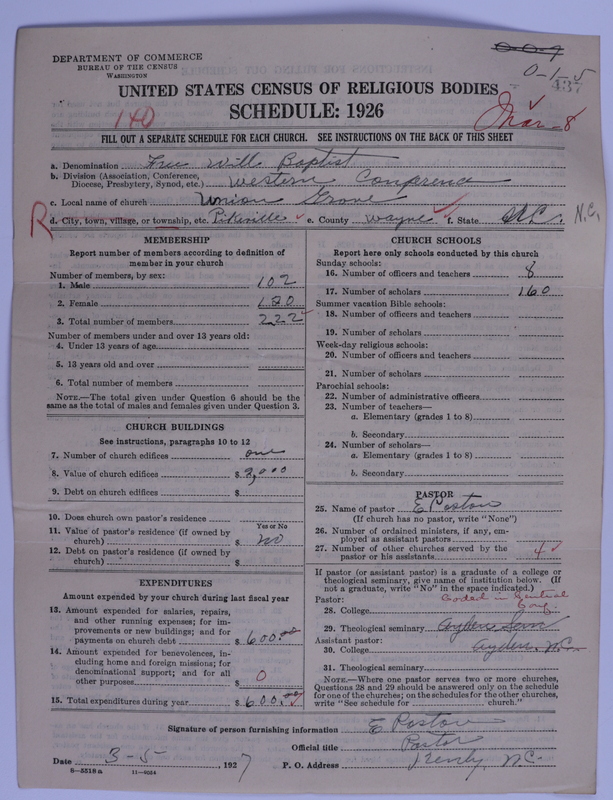 DEPARTMENT OF COMMERCE
BUREAU OF THE CENSUS
WASHINGTON
0-1-5
437
UNITED STATES CENSUS OF RELIGIOUS BODIES
SCHEDULE: 1926
140
Mar-8
FILL OUT A SEPARATE SCHEDULE FOR EACH CHURCH. SEE INSTRUCTIONS ON THE BACK OF THIS SHEET
a. Denomination Free Will Baptist
b. Division (Association, Conference, Diocese, Presbytery, Synod, etc.) Western Conference
c. Local name of church Union Grove
R d. City, town, village, or township, etc. Pikeville e. County Wayne f. State N.C. N.C.
MEMBERSHIP
Report number of members according to definition of
member in your church
Number of members, by sex:
1. Male 102
2. Female 120
3. Total number of members 222
Number of members under and over 13 years old:
4. Under 13 years of age
5. 13 years old and over
6. Total number of members
NOTE.—The total given under Question 6 should be the
same as the total of males and females given under Question 3.
CHURCH BUILDINGS
See instructions, paragraphs 10 to 12
7. Number of church edifices one
8. Value of church edifices $ 2,000
9. Debt on church edifices $
10. Does church own pastor's residence
Yes or No
11. Value of pastor's residence (if owned by
church) $ no
12. Debt on pastor's residence (if owned by
church) $
EXPENDITURES
Amount expended by your church during last fiscal year
13. Amount expended for salaries, repairs,
and other running expenses; for im-
provements or new buildings; and for
payments on church debt $ 600.00
14. Amount expended for benevolences, in-
cluding home and foreign missions; for
denominational support; and for all
other purposes $ 0
15. Total expenditures during year $ 600.00
CHURCH SCHOOLS
Report here only schools conducted by this church
Sunday schools:
16. Number of officers and teachers 8
17. Number of scholars 160
Summer vacation Bible schools:
18. Number of officers and teachers
19. Number of scholars
Week-day religious schools:
20. Number of officers and teachers
21. Number of scholars
Parochial schools:
22. Number of administrative officers
23. Number of teachers—
a. Elementary (grades 1 to 8)
b. Secondary
24. Number of scholars—
a. Elementary (grades 1 to 8)
b. Secondary
PASTOR
25. Name of pastor E Poston
(If church has no pastor, write "None")
26. Number of ordained ministers, if any, em-
ployed as assistant pastors
27. Number of other churches served by the
pastor or his assistants 4
If pastor (or assistant pastor) is a graduate of a college or
theological seminary, give name of institution below. (If
not a graduate, write "No" in the space indicated.)
Pastor: Coded in Central
28. College
29. Theological seminary Ayden Sem
Assistant pastor:
30. College Ayden, N.C.
31. Theological seminary
NOTE.—Where one pastor serves two or more churches,
Questions 28 and 29 should be answered only on the schedule
for one of the churches; on the schedules for the other churches,
write "See schedule for church."
Signature of person furnishing information E Poston
Official title Pastor
Date 3-5 1927 P. O. Address Kenly, N.C.
8-5518a 11-9024